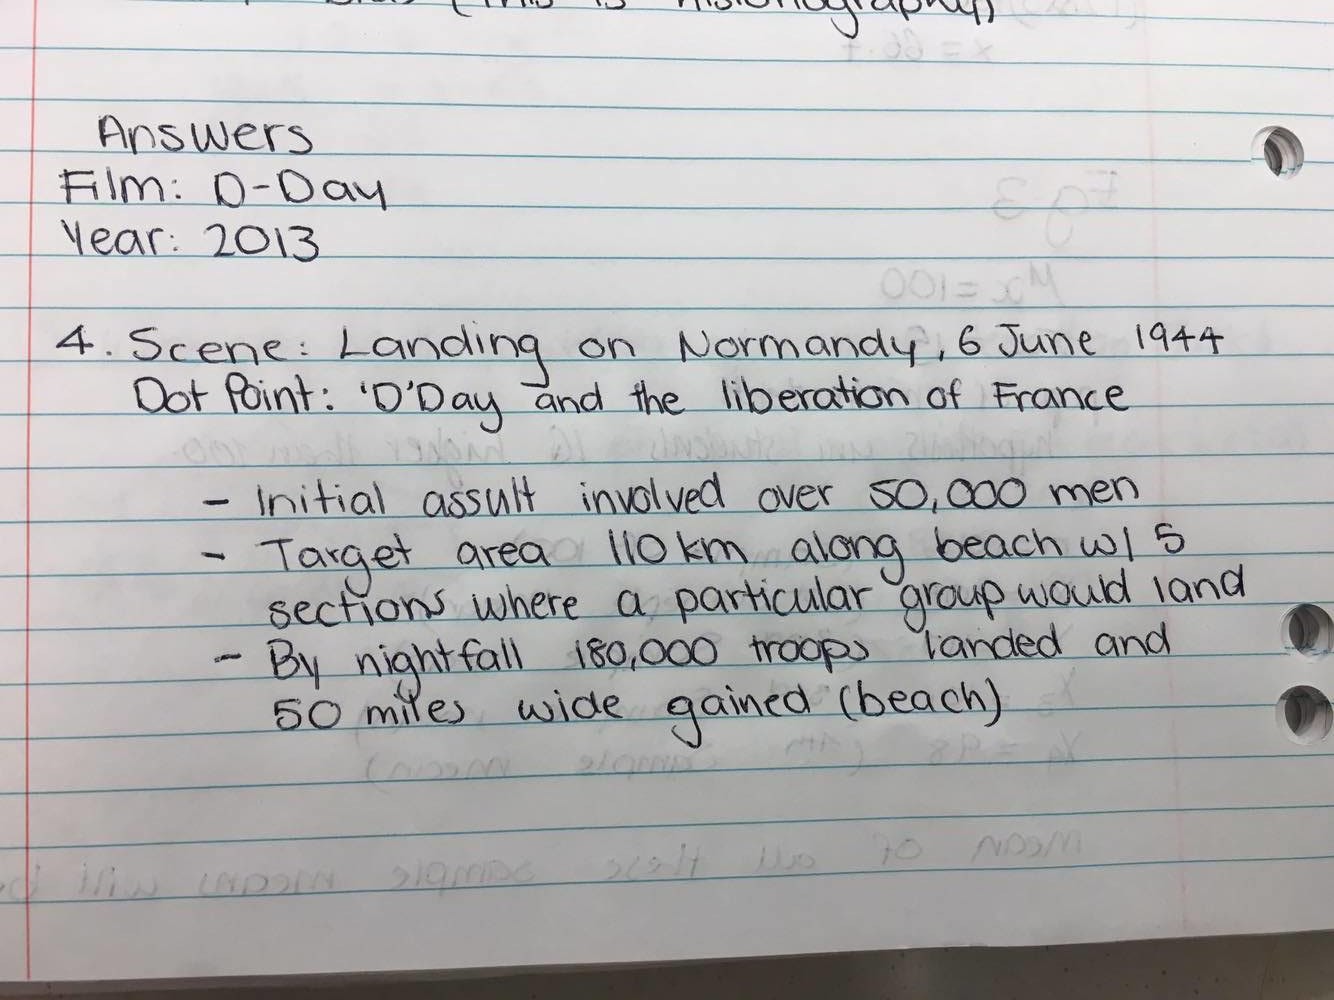 (This is historiography)
Answers
Film: D-Day
Year: 2013
4. Scene: Landing on Normandy, 6 June 1944
Dot Point: 'D'Day and the liberation of France
- Initial assult involved over 50,000 men
- Target area 110km along beach w/ 5
sections where a particular group would land
- By nightfall 180,000 troops landed and
50 miles wide gained (beach)